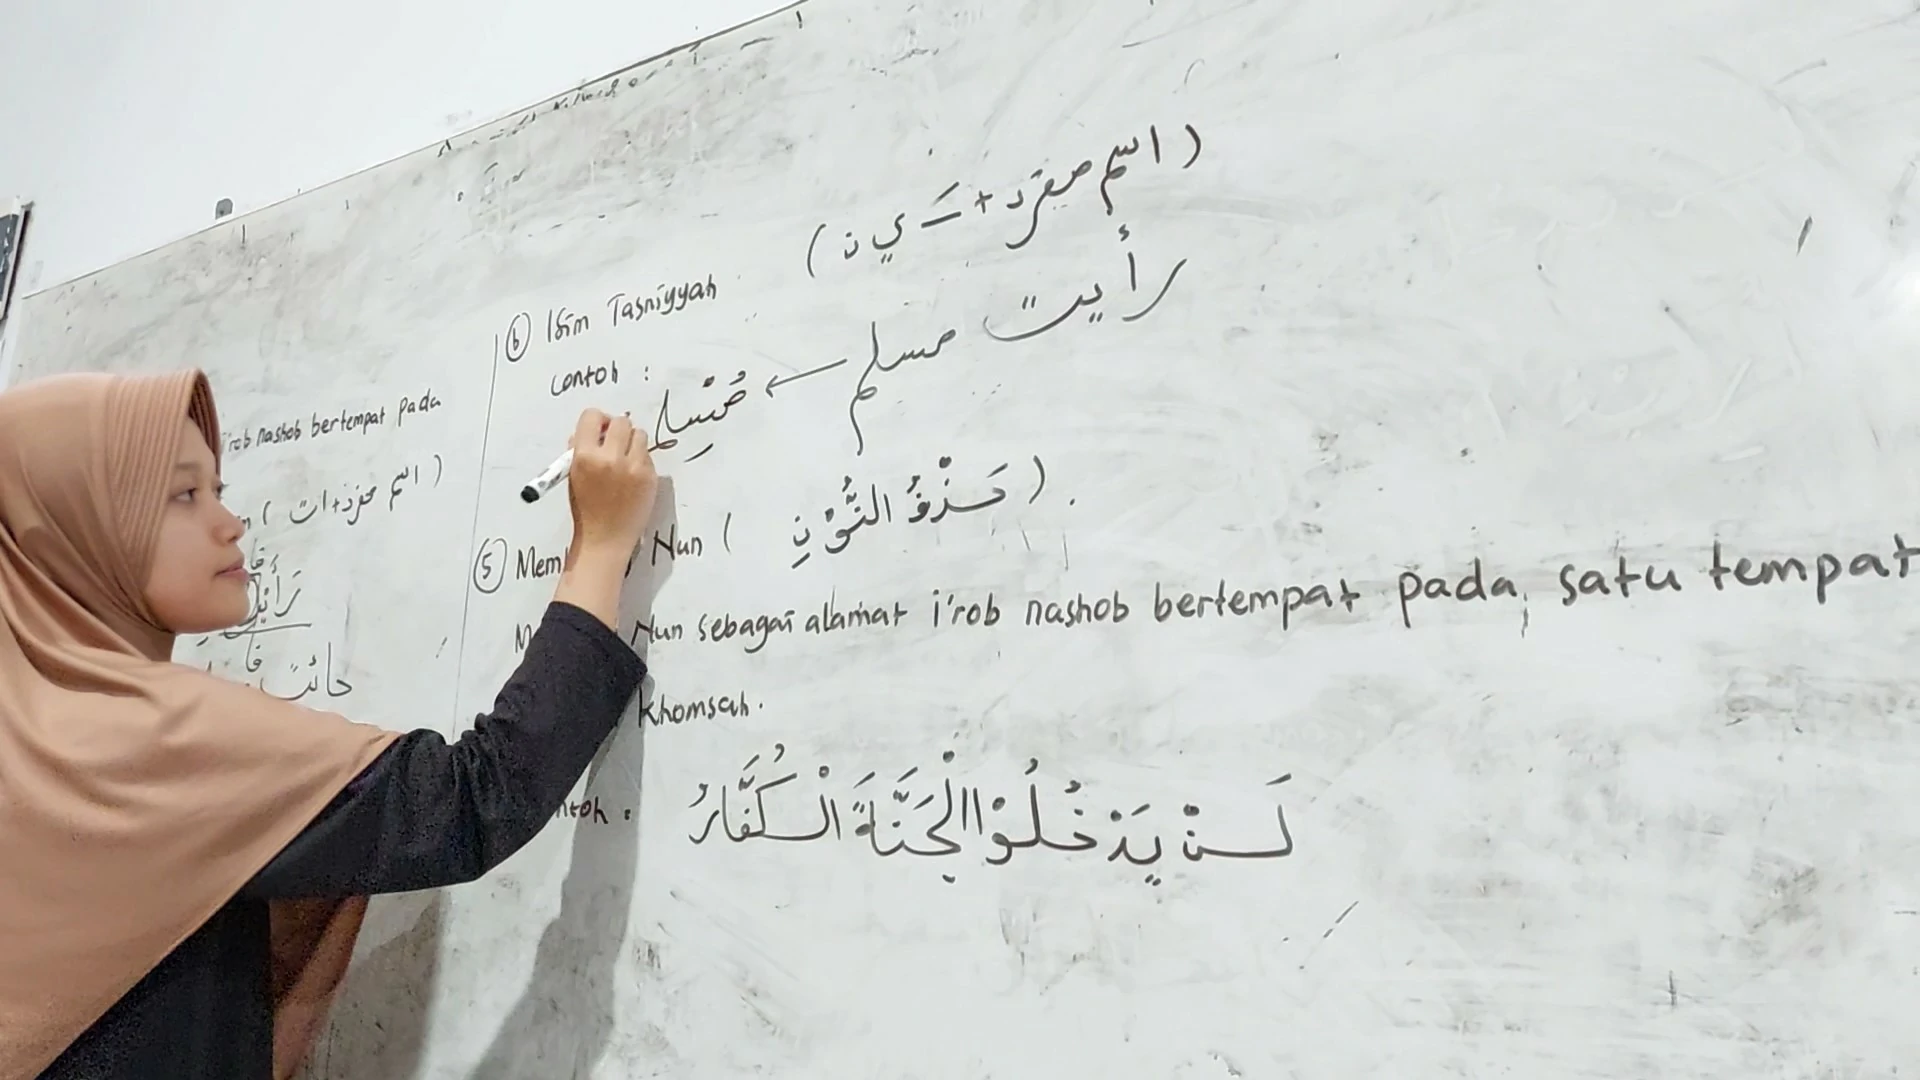 i'rob nashob bertempat pada
( اسم مفرد + ات )
حائت
ⓑ Isim Tasniyyah ( اسم مفرد + ـَ ي ن )
contoh : رأيت مسلم ← مُسْلِم
⑤ Nun ( حَذْفُ النُّوْنِ ) .
Nun sebagai alamat i'rob nashob bertempat pada satu tempat
khomsah.
ntoh : لَنْ يَدْخُلُوْا الْجَنَّةَ الْكُفَّارُ